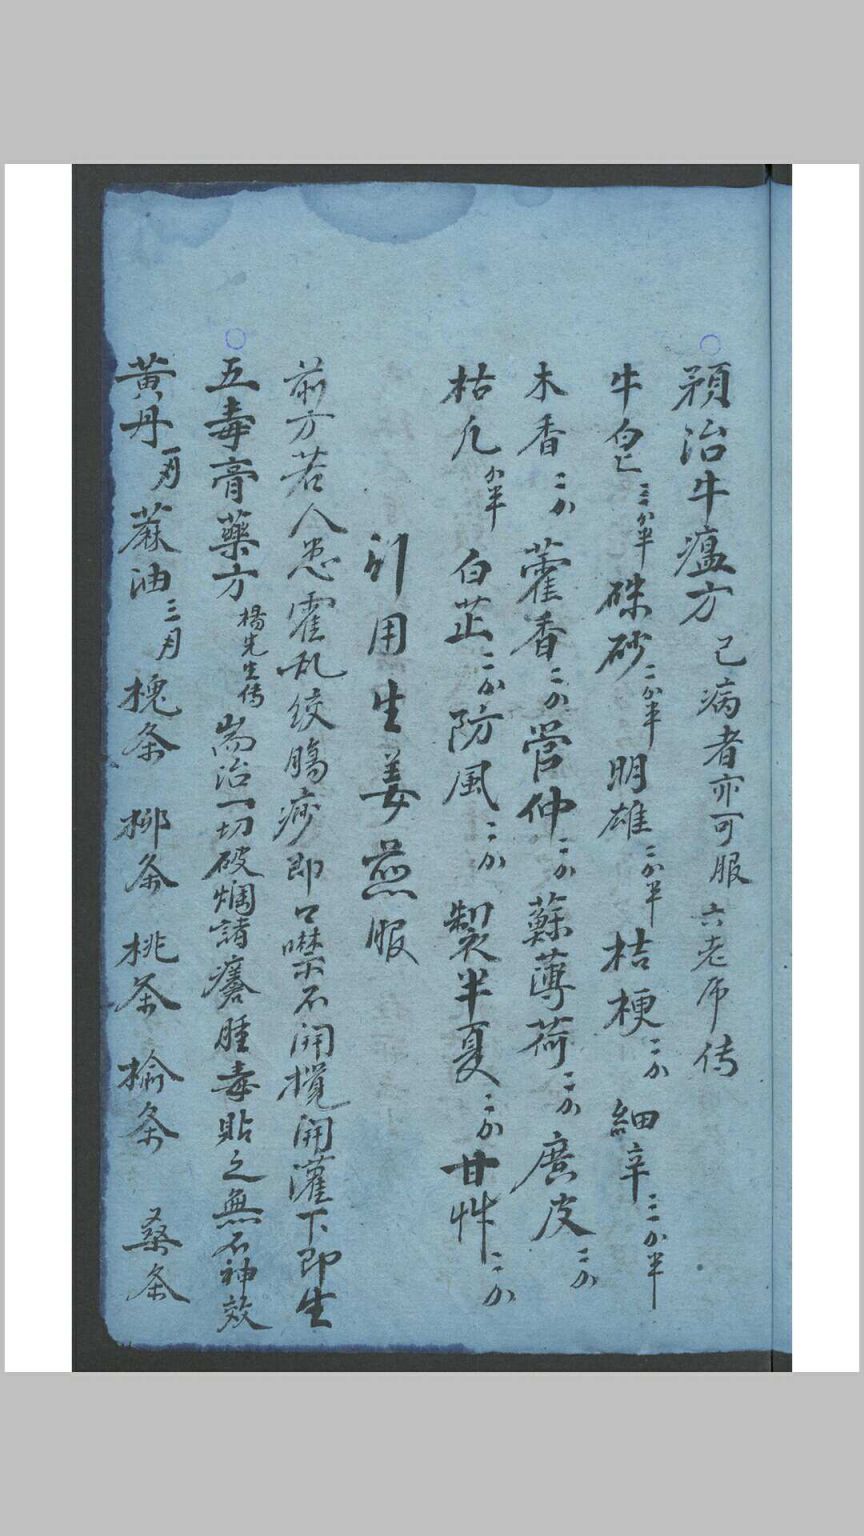 預治牛瘟方 已病者亦可服 六老師传
牛皂 三分半 硃砂 二分半 明雄 二分半 桔梗 二分 細辛 三分半
木香 二分 藿香 二分 管仲 二分 蘇薄荷 二分 廣皮 二分
枯凡 分半 白芷 二分 防風 二分 製半夏 二分 甘艸 二分
引用生姜煎服
前方若人患霍乱绞腸痧即口噤不開撹開灌下即生
五毒膏藥方 楊先生传 耑治一切破爛諸瘡腫毒貼之無不神效
黃丹 蔴油 槐条 柳条 桃条 榆条 桑条